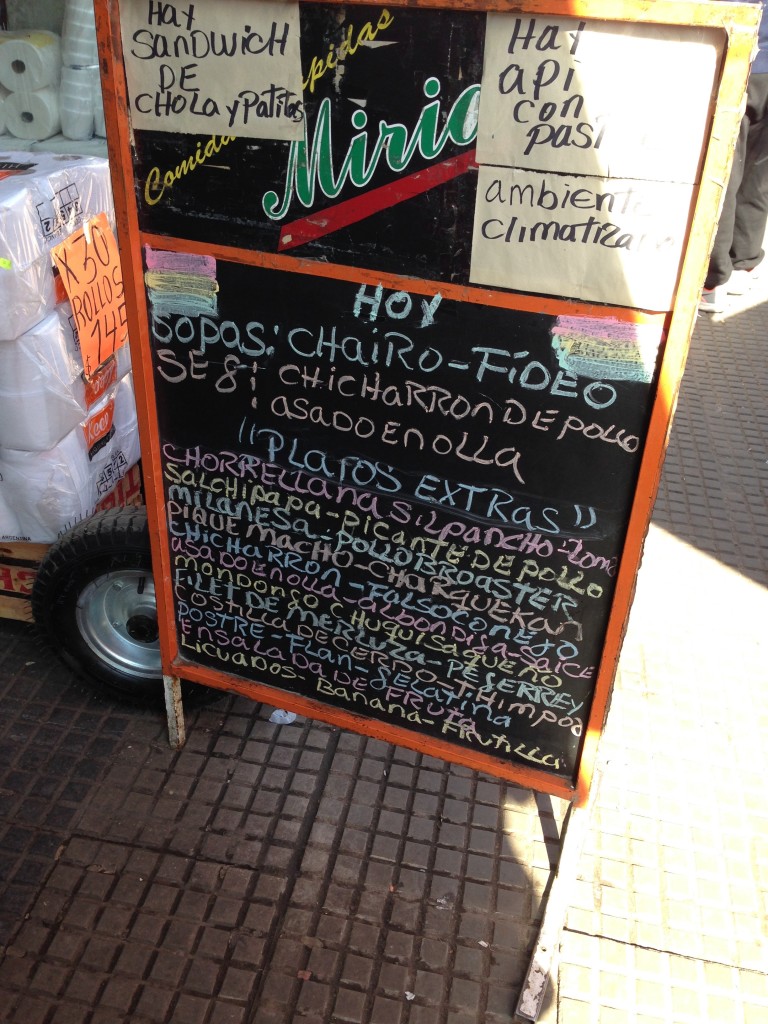 Hay
SANDWICH
DE
CHOLA y PATITAS
Comidas
Miria
Hay
api
con
ambiente
climatiza
X30
ROLLOS
$145
HOY
SOPAS: CHAIRO-FIDEO
SEG: CHICHARRON DE POLLO
ASADO EN OLLA
"PLATOS EXTRAS"
CHORRELLANA SILPANCHO-LOMO
SALCHIPAPA-PICANTE DE POLLO
MILANESA-POLLO BROASTER
PIQUE MACHO-CHARQUEKAN
CHICHARRON-FALSO CONEJO
ASADO EN OLLA-ALBONDIGA-SAICE
MONDONGO CHUQUISAQUEÑO
FILET DE MERLUZA-PEJERREY
COSTILLA DE CERDO-THIMPOA
POSTRE-FLAN-GELATINA
ENSALADA DE FRUTA
LICUADOS-BANANA-FRUTILLA